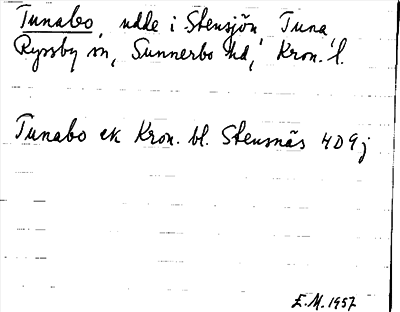 Tunabo, udde i Stensjön, Tuna,
Ryssby sn, Sunnerbo hd, Kron. l.
Tunabo ek Kron. bl. Stensnäs 4D9j
E.M. 1957